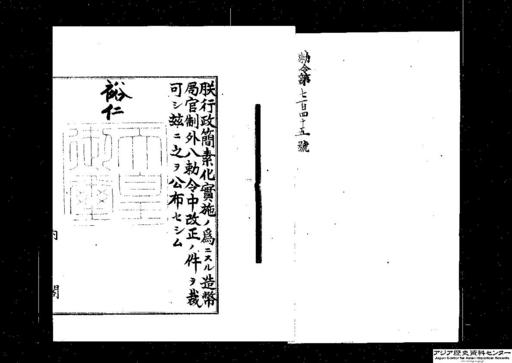 勅令第七百四十五號
朕行政簡素化實施ノ爲ニスル造幣
局官制外八勅令中改正ノ件ヲ裁
可シ茲ニ之ヲ公布セシム
裕仁
天皇御璽
内閣
アジア歴史資料センター
Japan Center for Asian Historical Records